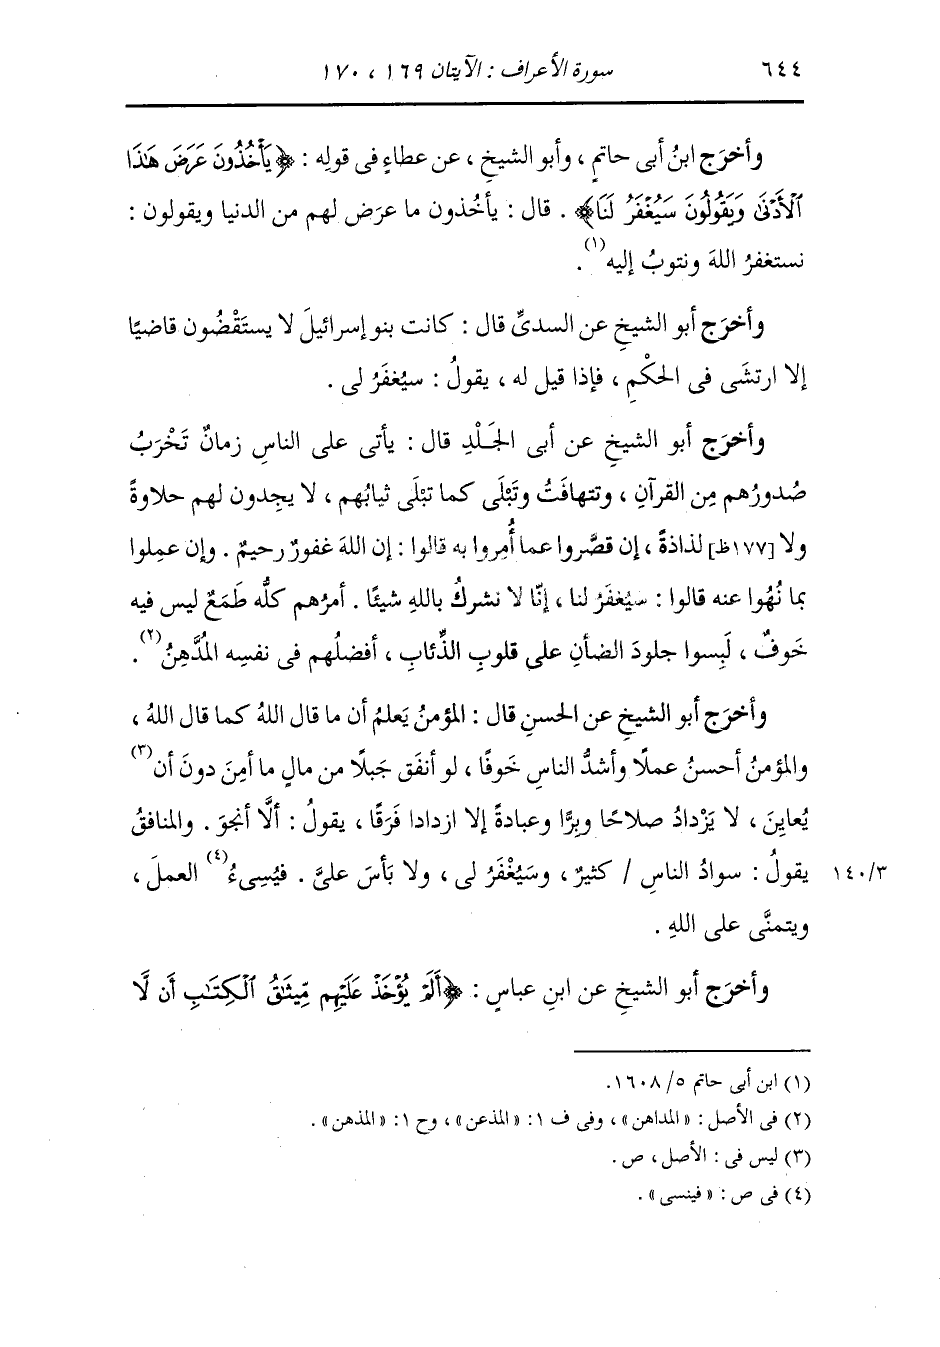 ٦٤٤ سورة الأعراف : الآيتان ١٦٩ ، ١٧٠
وأخرَج ابنُ أبى حاتمٍ ، وأبو الشيخِ ، عن عطاءٍ فى قولِه : ﴿يَأْخُذُونَ عَرَضَ هَٰذَا
ٱلْأَدْنَىٰ وَيَقُولُونَ سَيُغْفَرُ لَنَا﴾ . قال : يأخُذون ما عرَض لهم من الدنيا ويقولون :
نستغفرُ اللهَ ونتوبُ إليه(١).
وأخرَج أبو الشيخِ عن السدىِّ قال : كانت بنو إسرائيلَ لا يستَقْضُون قاضيًا
إلا ارتشَى فى الحكْمِ ، فإذا قيل له ، يقولُ : سيُغفَرُ لى .
وأخرَج أبو الشيخِ عن أبى الجَلْدِ قال : يأتى على الناسِ زمانٌ تَخْرَبُ
صُدورُهم مِن القرآنِ ، وتتهافَتُ وتَبْلَى كما تبْلَى ثيابُهم ، لا يجِدون لهم حلاوةً
ولا [١٧٧ظ] لذاذةً ، إن قصَّروا عما أُمِروا به قالوا : إن اللهَ غفورٌ رحيمٌ . وإن عمِلوا
بما نُهُوا عنه قالوا : سيُغفَرُ لنا ، إنّا لا نشركُ باللهِ شيئًا . أمرُهم كلُّه طَمَعٌ ليس فيه
خَوفٌ ، لَبِسوا جلودَ الضأنِ على قلوبِ الذِّئابِ ، أفضلُهم فى نفسِه المُدَّهِنُ(٢).
وأخرَج أبو الشيخِ عن الحسنِ قال : المؤمنُ يَعلمُ أن ما قال اللهُ كما قال اللهُ ،
والمؤمنُ أحسنُ عملًا وأشدُّ الناسِ خَوفًا ، لو أنفَق جَبلًا من مالٍ ما أمِنَ دونَ أن(٣)
يُعاينَ ، لا يَزْدادُ صلاحًا وبِرًّا وعبادةً إلا ازدادا فَرَقًا ، يقولُ : ألَّا أنجوَ . والمنافقُ
يقولُ : سوادُ الناسِ / كثيرٌ ، وسَيُغْفَرُ لى ، ولا بَأسَ علىَّ . فيُسِىءُ(٤) العملَ ، ١٤٠/٣
ويتمنَّى على اللهِ .
وأخرَج أبو الشيخِ عن ابنِ عباسٍ : ﴿أَلَمْ يُؤْخَذْ عَلَيْهِم مِّيثَٰقُ ٱلْكِتَٰبِ أَن لَّا
(١) ابن أبى حاتم ٥/ ١٦٠٨.
(٢) فى الأصل : «المداهن» ، وفى ف ١: «المذعن» ، وح ١: «المذهن» .
(٣) ليس فى : الأصل ، ص .
(٤) فى ص : «فينسى» .